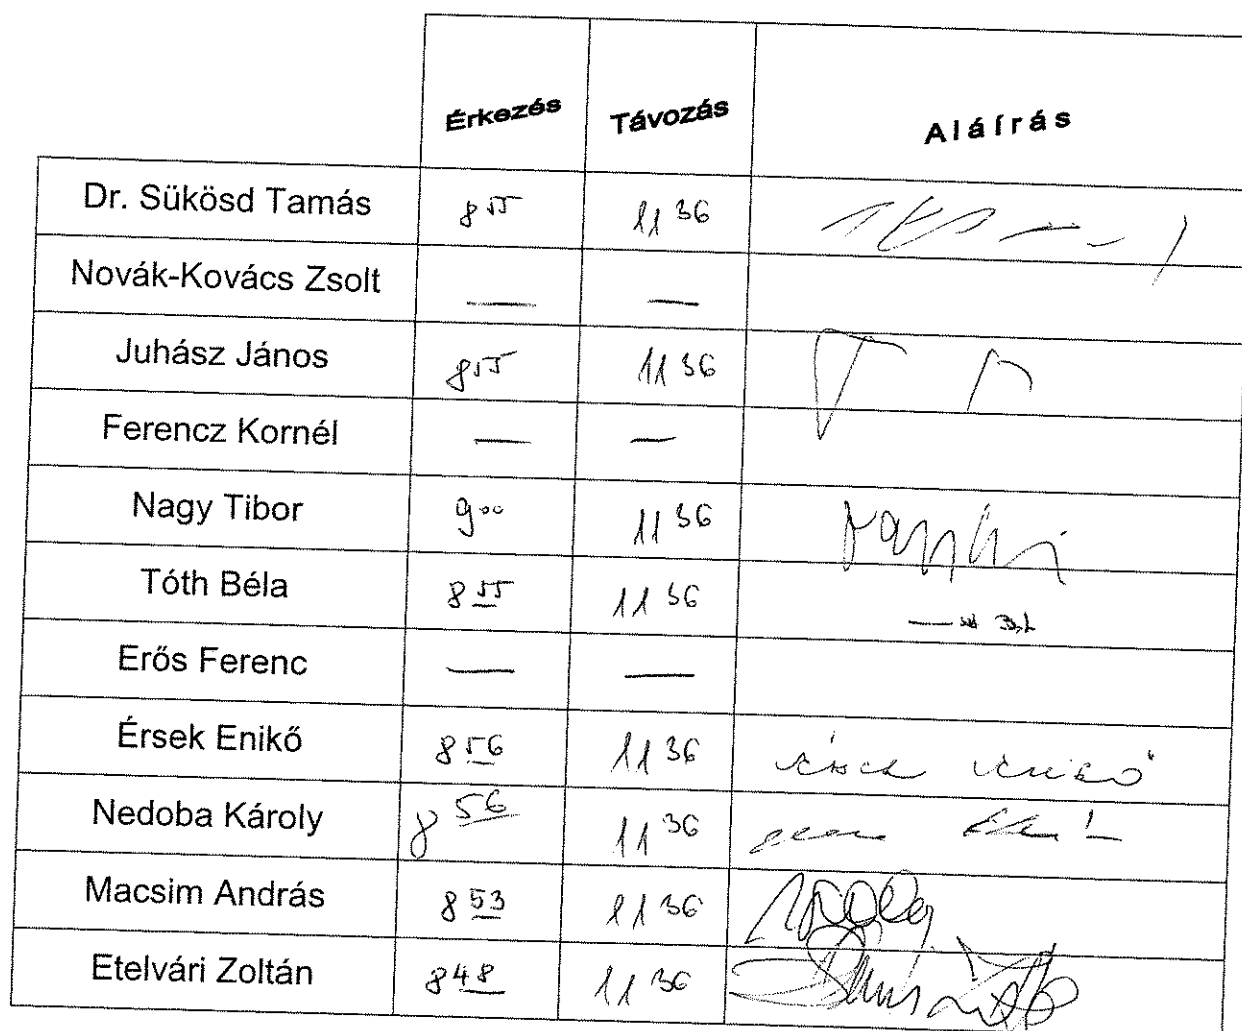 Érkezés Távozás Aláírás
Dr. Sükösd Tamás 8 55 11 36
Novák-Kovács Zsolt — —
Juhász János 8 55 11 36
Ferencz Kornél — —
Nagy Tibor 9 00 11 36
Tóth Béla 8 55 11 36
Erős Ferenc — —
Érsek Enikő 8 56 11 36 Érsek Enikő
Nedoba Károly 8 56 11 36
Macsim András 8 53 11 36
Etelvári Zoltán 8 48 11 36